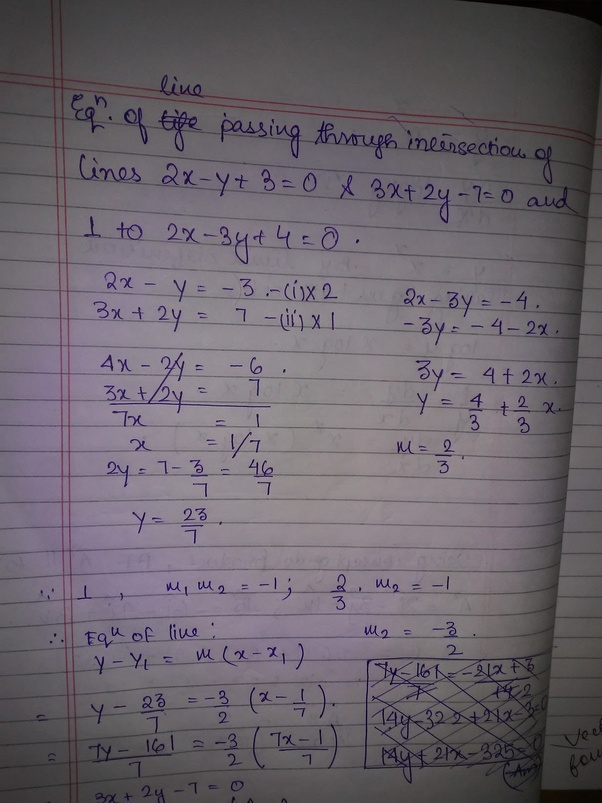 line
Eqⁿ. of passing through intersection of
lines 2x - y + 3 = 0 & 3x + 2y - 7 = 0 and
⊥ to 2x - 3y + 4 = 0 .
2x - y = -3 - (i) x 2
3x + 2y = 7 - (ii) x 1
4x - 2y = -6 .
3x + 2y = 7
7x = 1
x = 1/7
2y = 7 - 3/7 = 46/7
y = 23/7 .
2x - 3y = -4 .
-3y = -4 - 2x .
3y = 4 + 2x .
y = 4/3 + 2/3 x .
m = 2/3 .
∵ ⊥ , m₁ m₂ = -1 ; 2/3 . m₂ = -1
m₂ = -3/2 .
∴ Eqⁿ of line :
y - y₁ = m ( x - x₁ )
= y - 23/7 = -3/2 ( x - 1/7 ) .
= 7y - 161/7 = -3/2 ( 7x - 1 / 7 )
3x + 2y - 7 = 0
7y - 161 / 7 = -21x + 3 / 14 2
14y - 322 + 21x - 3 = 0
14y + 21x - 325 = 0